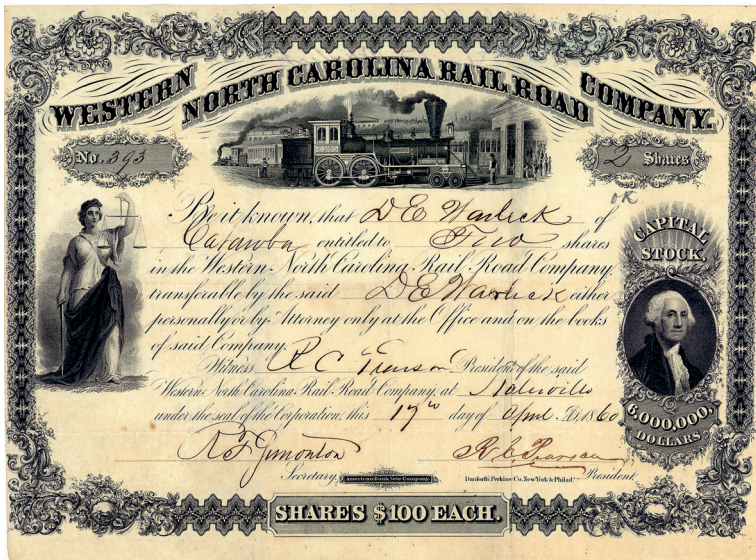 WESTERN NORTH CAROLINA RAIL ROAD COMPANY.
No. 393
2 Shares
OK
Be it known, that D E Warlick of
Catawba entitled to Two shares
in the Western North Carolina Rail Road Company,
transferable by the said D E Warlick either
personally or by Attorney only at the Office and on the books
of said Company.
Witness R C Pearson President of the said
Western North Carolina Rail Road Company, at Statesville
under the seal of the Corporation, this 17th day of April A.D. 1860
CAPITAL
STOCK,
6,000,000.
DOLLARS
R F Simonton
R C Pearson
Secretary, American Bank Note Company. Danforth, Perkins & Co. New York & Philada. President.
SHARES $100 EACH.